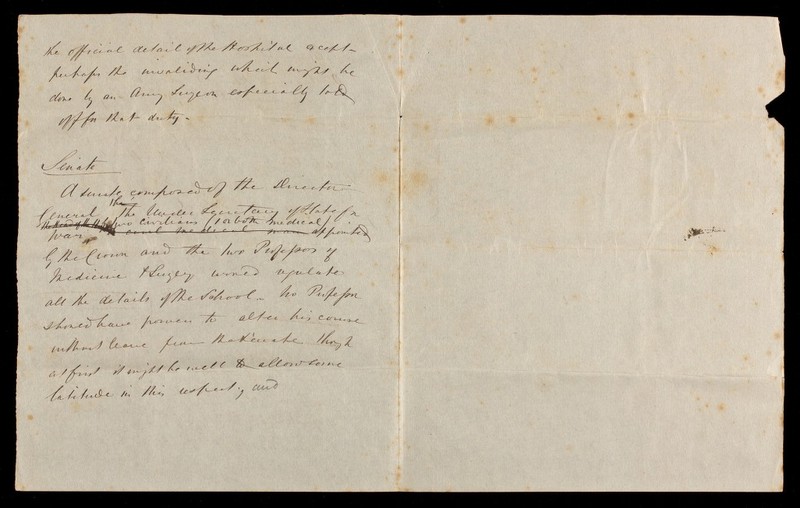 the official detail of the Hospital except
perhaps the invaliding which might be
done by an Army Surgeon especially told
off for that duty.
Senate
A senate composed of the Director
General the Under Secretary of State for
two civilians (1 or both medical)
War a civil medical man appointed
by the Crown and the two Professors of
Medicine & Surgery would regulate
all the details of the School. No Professor
should have power to alter his course
without leave from the Senate though
at first it might be well to allow some
latitude in this respect, and